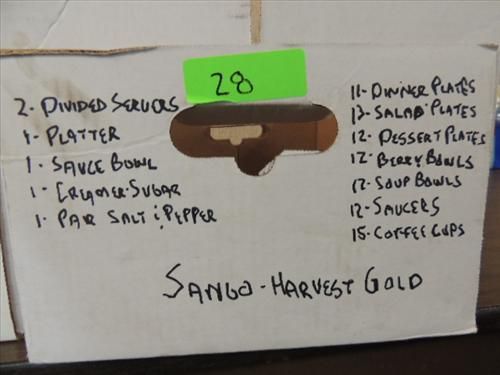 28
2- DIVIDED SERVERS
1- PLATTER
1- SAUCE BOWL
1- CREAMER-SUGAR
1- PAIR SALT & PEPPER
11- DINNER PLATES
13- SALAD PLATES
12- DESSERT PLATES
12- BERRY BOWLS
12- SOUP BOWLS
12- SAUCERS
15- COFFEE CUPS
SANGO - HARVEST GOLD